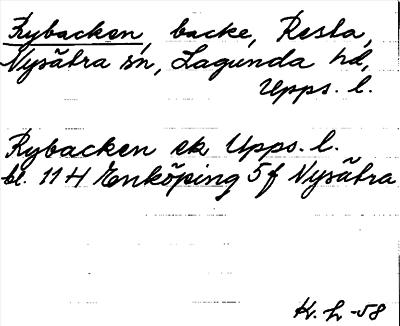 Rybacken, backe, Resta,
Nysätra sn, Lagunda hd,
Upps. l.
Rybacken ek Upps. l.
bl. 11 H Enköping 5f Nysätra
-58